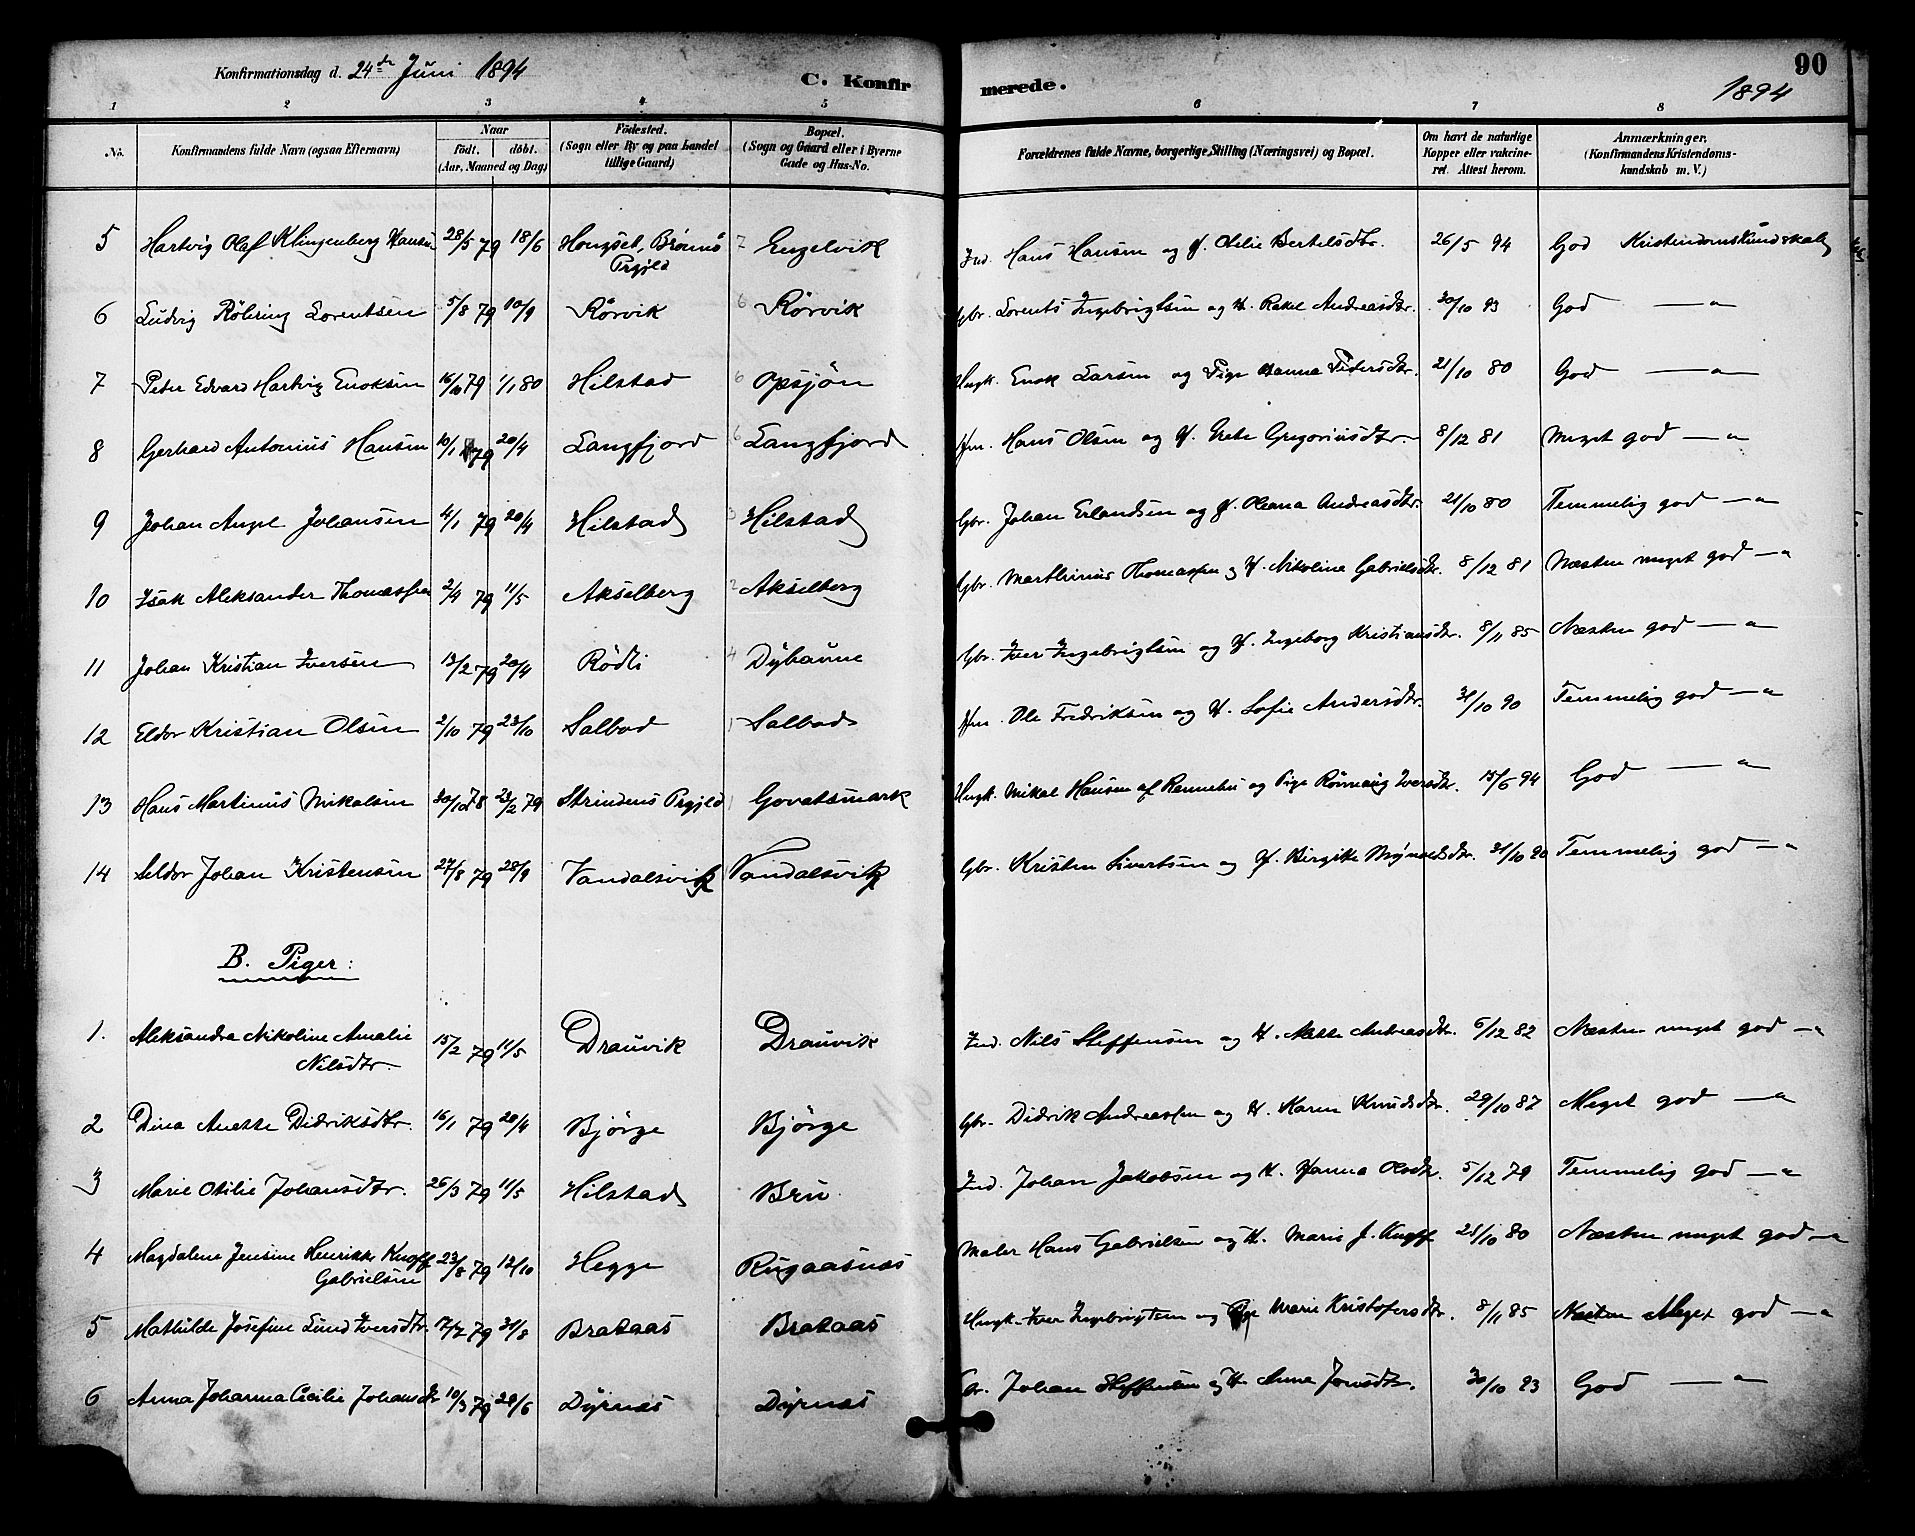 Konfirmationsdag d. 24de Juni 1894
C. Konfirmerede.
90
1894
1 2 3 4 5 6 7 8
No. Konfirmandens fulde Navn (ogsaa Efternavn) Naar Födt. döbt. (Aar, Maaned og Dag) Födested. (Sogn eller By og paa Landet tillige Gaard) Bopæl. (Sogn og Gaard eller i Byerne Gade og Hus-No. Forældrenes fulde Navne, borgerlige Stilling (Næringsvei) og Bopæl. Om havt de naturlige Kopper eller vakcineret. Attest herom. Anmærkninger. (Konfirmandens Kristendomskundskab m. V.)
5 Hartvig Olaf Klingenberg Hansen 28/5 79 18/6 Hongset, Brönnö Prgjld 7 Engelvik Ind. Hans Hansen og H. Olelie Bertelsdtr. 26/5 94 God Kristendomskundskab
6 Ludvig Röhring Lorentsen 5/8 79 10/9 Rörvik 6 Rörvik Gbr. Lorents Ingebrigtsen og H. Rakel Andreasdtr. 30/10 93 God —"—
7 Peter Edvard Hartvig Enoksen 16/10 79 1/1 80 Hilstad 6 Opsjön Ungk. Enok Larsen og Pige Hanna Pedersdtr. 21/10 80 God —"—
8 Gerhard Antonius Hansen 10/1 79 20/4 Langfjord 6 Langfjord Hans Olsen og H. Grete Gregoriusdtr. 8/12 81 Meget god —"—
9 Johan Angel Johansen 4/1 79 20/4 Hilstad 3 Hilstad Gbr. Johan Erlandsen og H. Oleana Andreasdtr. 21/10 80 Temmelig god —"—
10 Isak Aleksander Thomassen 2/4 79 11/5 Akselberg 2 Akselberg Gbr. Marthinus Thomassen og H. Nikoline Gabrielsdtr. 8/12 81 Næsten meget god —"—
11 Johan Kristian Iversen 13/2 79 20/4 Rödli 4 Dybaune Gbr. Iver Ingebrigtsen og H. Ingeborg Kristiansdtr. 8/11 85 Næsten god —"—
12 Eldor Kristian Olsen 2/10 79 23/10 Salbod 1 Salbod Ole Fredriksen og H. Sofie Andersdtr. 31/10 90 Temmelig god —"—
13 Hans Martinus Mikalsen 30/10 78 23/2 79 Strindens Prgjld 1 Govatsmark Ungk. Mikal Hansen af Rennebu og Pige Rönnaug Iversdtr. 15/6 94 God —"—
14 Seldor Johan Kristensen 27/8 79 28/9 Vandalsvik Vandalsvik Gbr. Kristen Sivertsen og H. Birgitte 31/10 90 Temmelig god —"—
B. Piger:
1. Aleksandra Nikoline Amalie Nilsdtr. 15/2 79 11/5 Drauvik Drauvik Ind. Nils Steffensen og H. Mette Andreasdtr. 6/12 82 Næsten meget god —"—
2 Dina Anette Didriksdtr. 16/1 79 20/4 Bjørge Bjørge Gbr. Didrik Andreassen og H. Karen Knudsdtr. 29/10 87 Meget god —"—
3 Marie Otilie Johansdtr. 26/3 79 11/5 Hilstad Bru Ind. Johan Jakobsen og H. Hanna Olsdtr. 5/12 79 Temmelig god —"—
4 Magdalene Jensine Henrikke Knoff Gabrielsen 23/8 79 12/10 Hegge Rugaasnæs Maler Hans Gabrielsen og H. Marie J. Knoff 21/10 80 Næsten meget god —"—
5 Mathilde Josefine Lund Iversdtr. 17/7 79 31/8 Brataas Brataas Ungk. Iver Ingebrigtsen og Pige Marie Kristofersdtr. 8/11 85 Næsten Meget god —"—
6 Anna Johanna Cecilie Johansdtr 10/3 79 29/6 Dyrnæs Dyrnæs Gbr. Johan Steffensen og H. Anna Jonsdtr. 30/10 93 God —"—